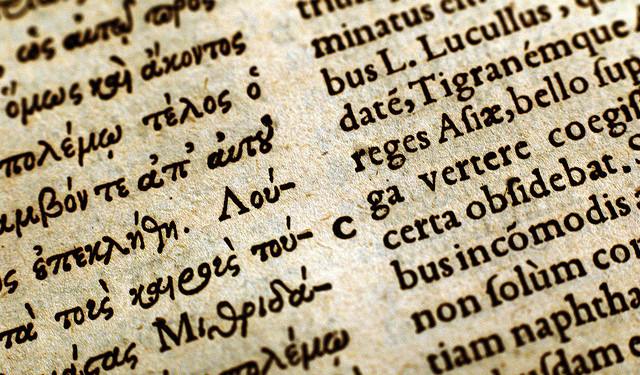 ὡς αὐτῷ πρὸς
ὅμως καὶ ἄκοντος
πολέμῳ τέλος ὁ
τε ἀπ' αὐτοῦ
ἐπεκλήθη. Λού-
τοὺς καιροὺς τού-
Μιθριδά-
πολέμῳ
C
minatus
bus L. Lucullus,
daté, Tigranémque
reges Aſiæ, bello ſup
ga vertere coegiſ
certa obſidebat.
bus incómodis
non ſolùm con
tiam naphtha